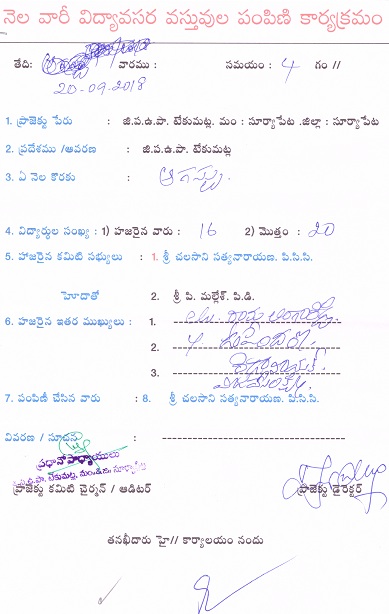 నెల వారీ విద్యావసర వస్తువుల పంపిణి కార్యక్రమం
తేది: / వారము : సమయం : 4 గం //
20-09-2018
1. ప్రాజెక్టు పేరు : జి.ప.ఉ.పా. టేకుమట్ల. మం : సూర్యాపేట .జిల్లా : సూర్యాపేట
2. ప్రదేశము /ఆవరణ : జి.ప.ఉ.పా. టేకుమట్ల
3. ఏ నెల కొరకు : ఆగస్టు.
4. విద్యార్థుల సంఖ్య : 1) హజరైన వారు : 16 2) మొత్తం : 20
5. హాజరైన కమిటి సభ్యులు : 1. శ్రీ చలసాని సత్యనారాయణ. పి.సి.సి.
హెూదాతో 2. శ్రీ పి. మల్లేశ్. పి.డి.
6. హజరైన ఇతర ముఖ్యులు : 1.
2.
3.
7. పంపిణి చేసిన వారు : 8. శ్రీ చలసాని సత్యనారాయణ. పి.సి.సి.
వివరణ / సూచన :
ప్రధానోపాధ్యాయులు
టేకుమట్ల, సూర్యాపేట
ప్రాజెక్టు కమిటి చైర్మన్ / ఆడిటర్ ప్రాజెక్టు డైరెక్టర్
తనఖీదారు హై// కార్యాలయం నందు